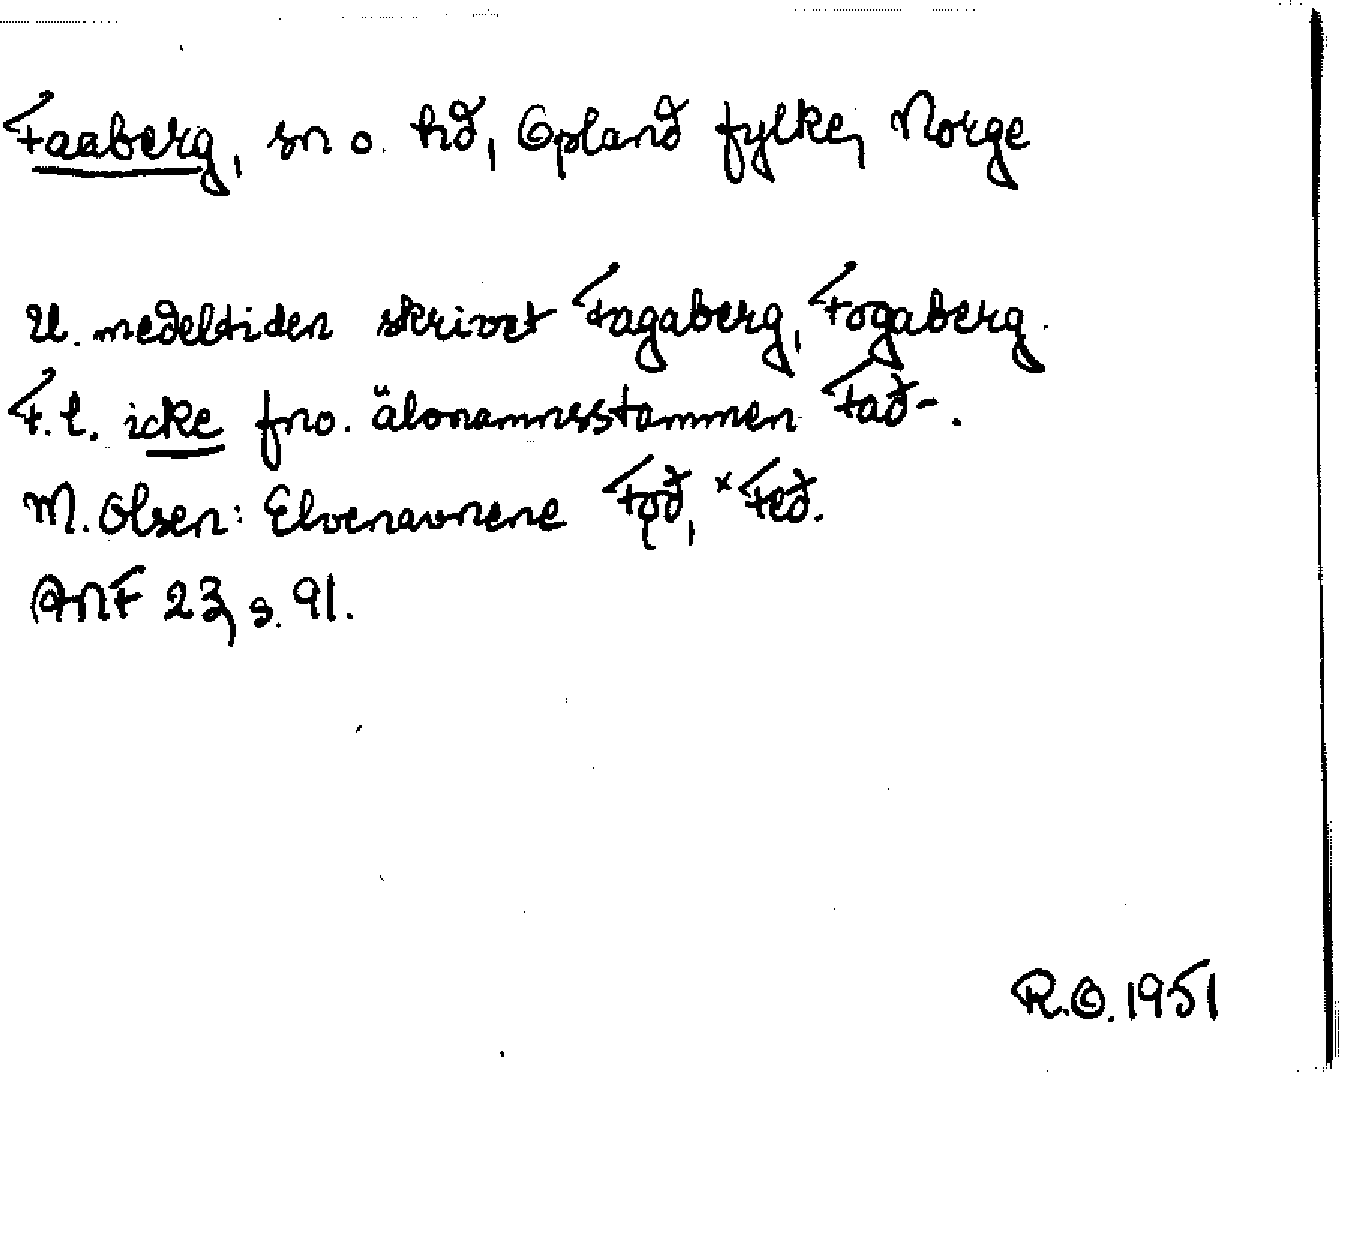 Faaberg, sn o. hd, Opland fylke, Norge
U. medeltiden skrivet Fagaberg, Fogaberg.
F.l. icke fno. älvnamnsstammen Fað-.
M. Olsen: Elvenavnene Fǫð, ×Feð.
ANF 23, s. 91.
R.O. 1951